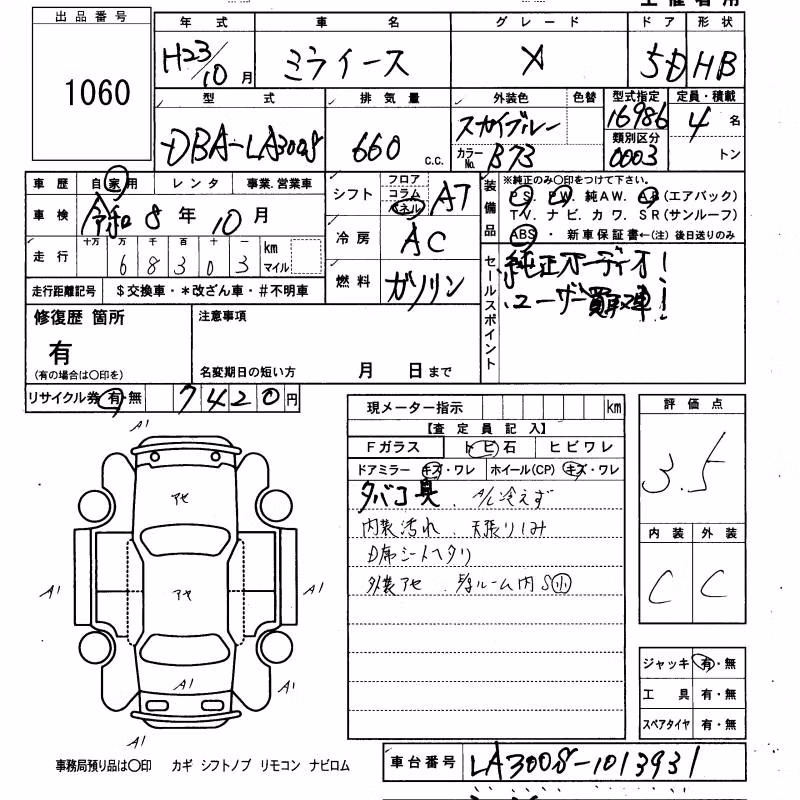 出品番号
1060
年式 車名 グレード ドア 形状
H23/10月 ミライース X 5D HB
型式 排気量 外装色 色替 型式指定 定員・積載
DBA-LA300S 660 C.C. スカイブルー 16986 4名
カラーNo. B73 類別区分 0003 トン
車歴 自家用 レンタ 事業.営業車
車検 令和8年10月
走行 十万 万 千 百 十 一 km マイル
6 8 3 0 3
走行距離記号 $交換車・*改ざん車・#不明車
シフト フロア コラム パネル AT
冷房 AC
燃料 ガソリン
装備品 ※純正のみ〇印をつけて下さい。
PS. PW. 純AW. AB(エアバック)
TV. ナビ. カワ. SR(サンルーフ)
ABS・ 新車保証書←(注) 後日送りのみ
セールスポイント
純正オーディオ!
ユーザー買取車!
修復歴 箇所
有
(有の場合は〇印を)
注意事項
名変期日の短い方 月 日まで
リサイクル券 有・無 7420円
現メーター指示 km
【査定員記入】
Fガラス トビ石 ヒビワレ
ドアミラー キズ・ワレ ホイール(CP) キズ・ワレ
タバコ臭 A/C冷えず
内装汚れ 天張りしみ
D席シートヘタリ
外装アセ ルーム内S小
評価点
3.5
内装 外装
C C
ジャッキ 有・無
工具 有・無
スペアタイヤ 有・無
A1
アセ
A1 アセ A1
A1
A1
事務局預り品は〇印 カギ シフトノブ リモコン ナビロム
車台番号 LA300S-1013931